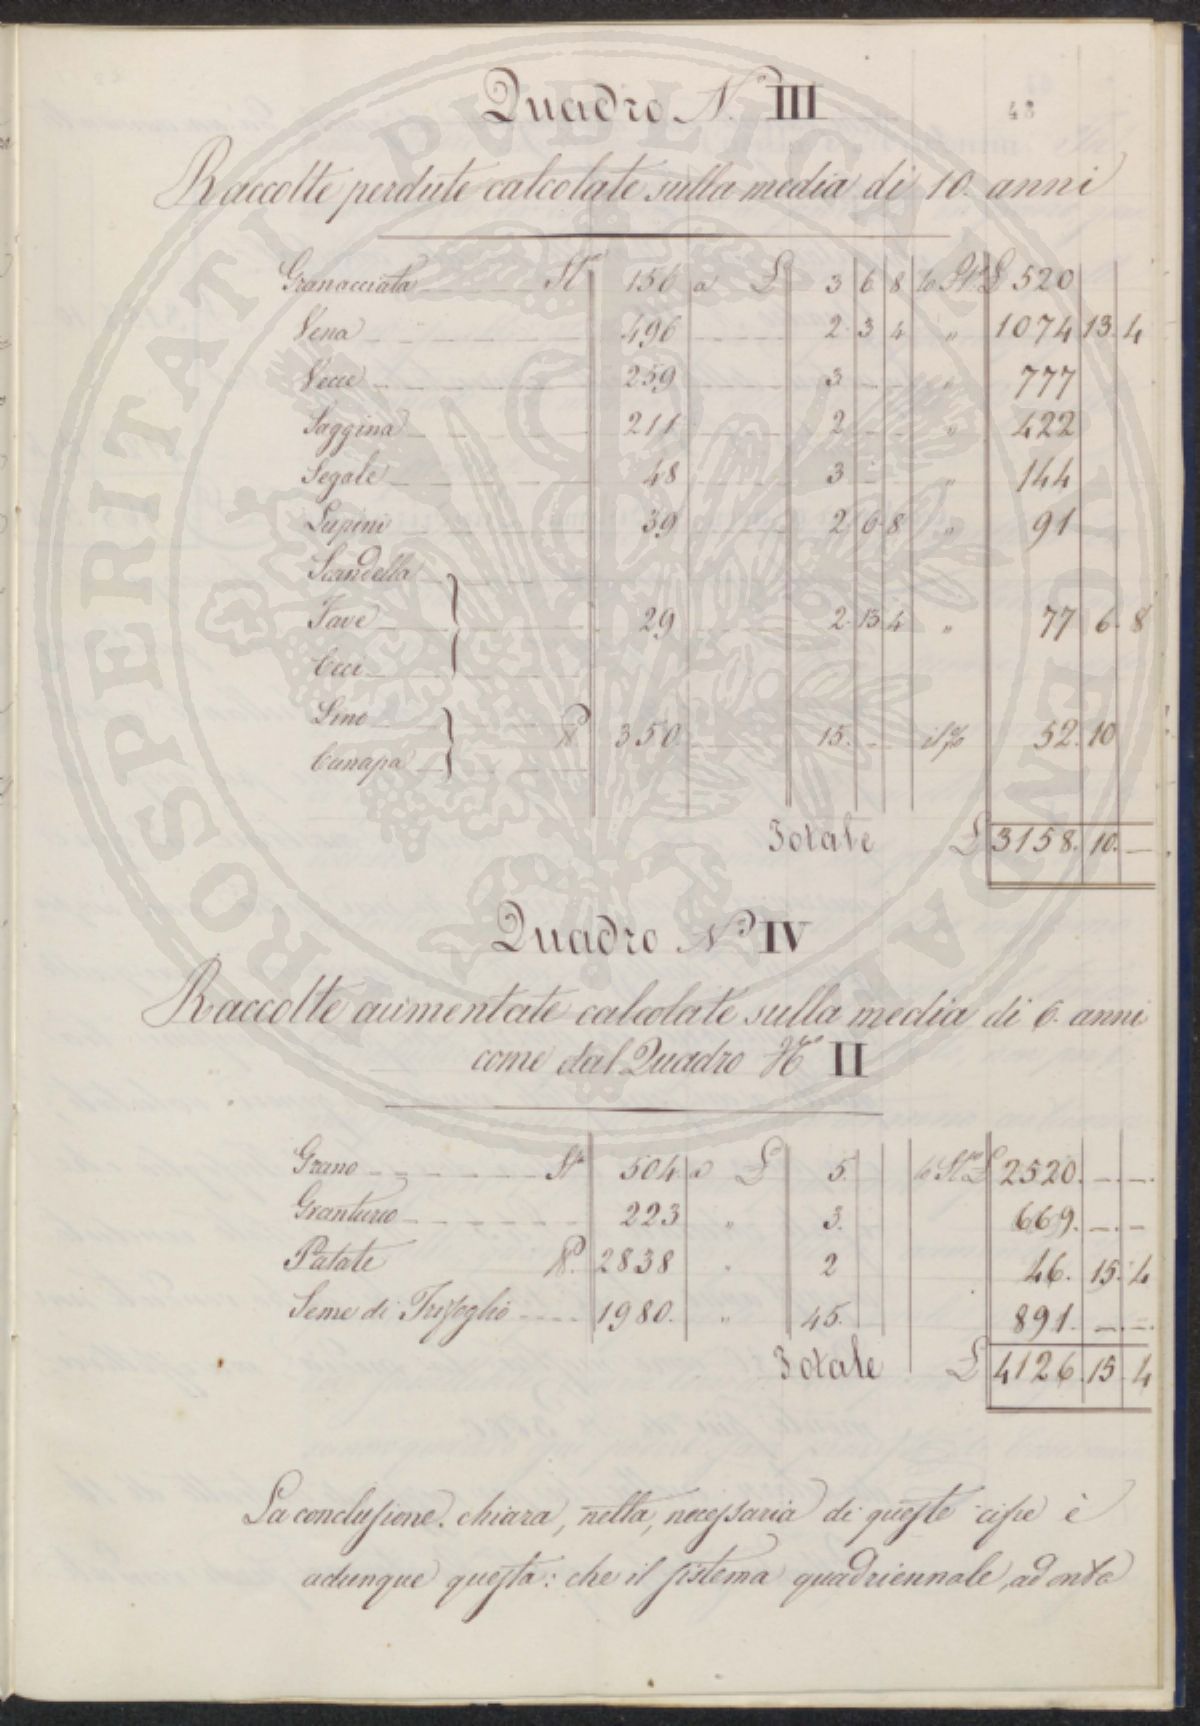 Quadro N.º III
48
Raccolte perdute calcolate sulla media di 10. anni
Granacciata St.ª 156 a £ 3 6 8 lo St.º £ 520
Vena 496 2. 3 4 " 1074 13. 4
Vecce 259 3 " 777
Saggina 211 2 " 422
Segale 48 3 " 144
Lupini 39 2 6 8 " 91
Scandella
Fave 29 2. 13 4 " 77 6. 8
Ceci
Lino
350. 15. il % 52. 10
Canapa
Totale £ 3158. 10. —
Quadro N.º IV
Raccolte aumentate calcolate sulla media di 6. anni
come dal Quadro N.º II
Grano St.ª 504. a £ 5. lo St.º £ 2520. — . — .
Granturco 223 " 3. 669. — . —
Patate 2838 " 2 46. 15. 4
Seme di Trifoglio 1980. " 45. 891. — . — .
Totale £ 4126. 15. 4
La conclusione chiara, netta, necessaria di queste cifre è
adunque questa: che il sistema quadriennale, ad onta
PROSPERITATI PUBLICAE AUGENDAE